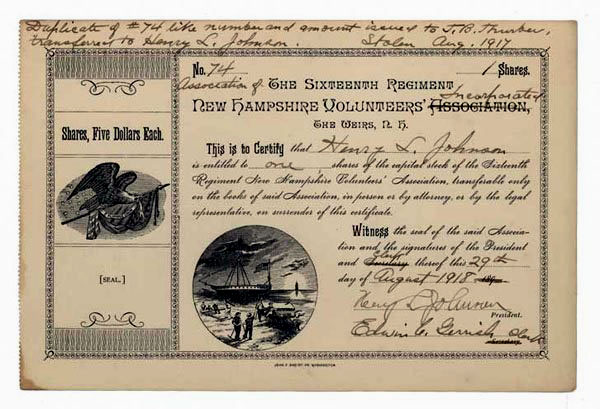 Duplicate of # 74 like number and amount issued to J. B. Thurber,
transferred to Henry L. Johnson. Stolen Aug. 1917
No. 74 1 Shares.
Association of THE SIXTEENTH REGIMENT
Incorporated
NEW HAMPSHIRE VOLUNTEERS' ASSOCIATION,
THE WEIRS, N. H.
Shares, Five Dollars Each.
This is to Certify that Henry L. Johnson
is entitled to one shares of the capital stock of the Sixteenth
Regiment New Hampshire Volunteers' Association, transferable only
on the books of said Association, in person or by attorney, or by the legal
representative, on surrender of this certificate.
Witness the seal of the said Associa-
tion and the signatures of the President
Clerk
and Secretary thereof this 29th
day of August 1918
[SEAL.]
Henry L Johnson
President.
Edwin C. Gerrish Clerk
Secretary